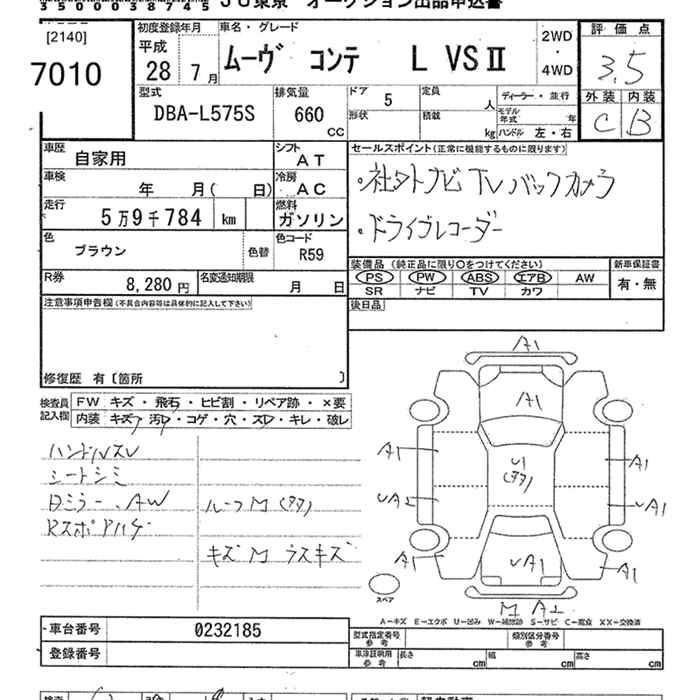 35000387​45 JU東京 オークション出品申込書
[2140]
7010
初度登録年月 車名・グレード
平成
28年 7月 ムーヴ コンテ L VSⅡ
2WD
・
4WD
評価点
3.5
外装 内装
C B
型式
DBA-L575S
排気量
660
CC
ドア 5
形状
定員
人
積載
kg
ディーラー・並行
モデル年式 年
ハンドル 左・右
車歴
自家用
シフト
AT
車検
年 月( 日)
冷房
AC
走行
5万9千784 km
燃料
ガソリン
色
ブラウン
色替
色コード
R59
R券
8,280円
名変通知期限
月 日
セールスポイント(正常に機能するものに限ります)
・社外ナビ TV バックカメラ
・ドライブレコーダー
装備品 (純正品に限り○をつけてください) 新車保証書
PS PW ABS エアB AW
SR ナビ TV カワ
有・無
後日品
注意事項申告欄(不具合内容等は具体的に記入して下さい)
修復歴 有〔箇所 〕
検査員記入欄
FW キズ・飛石・ヒビ割・リペア跡・×要
内装 キズ・汚・コゲ・穴・スレ・キレ・破レ
ハンドルスレ
シートシミ
ミラー、AW
ルーフM(タタ)
キズM ラスキズ
A1
A1
A1
A1
U1
(タタ)
UA2
UA1
A1
UA1
A1
M A2
スペア
A-キズ E-エクボ U-凹み W-補修跡 S-サビ C-腐食 XX-交換済
車台番号 0232185
登録番号
型式指定番号
参考
類別区分番号
参考
車庫証明用
参考
長さ cm
幅 cm
高さ cm